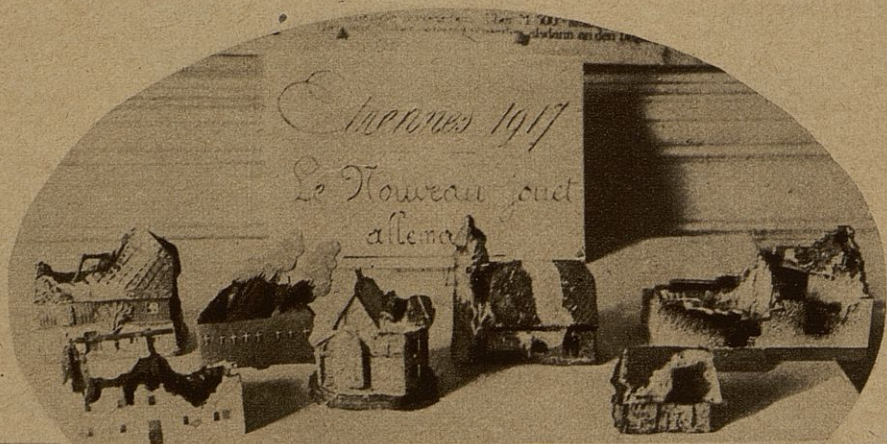 Etrennes 1917
Le Nouveau jouet
allema